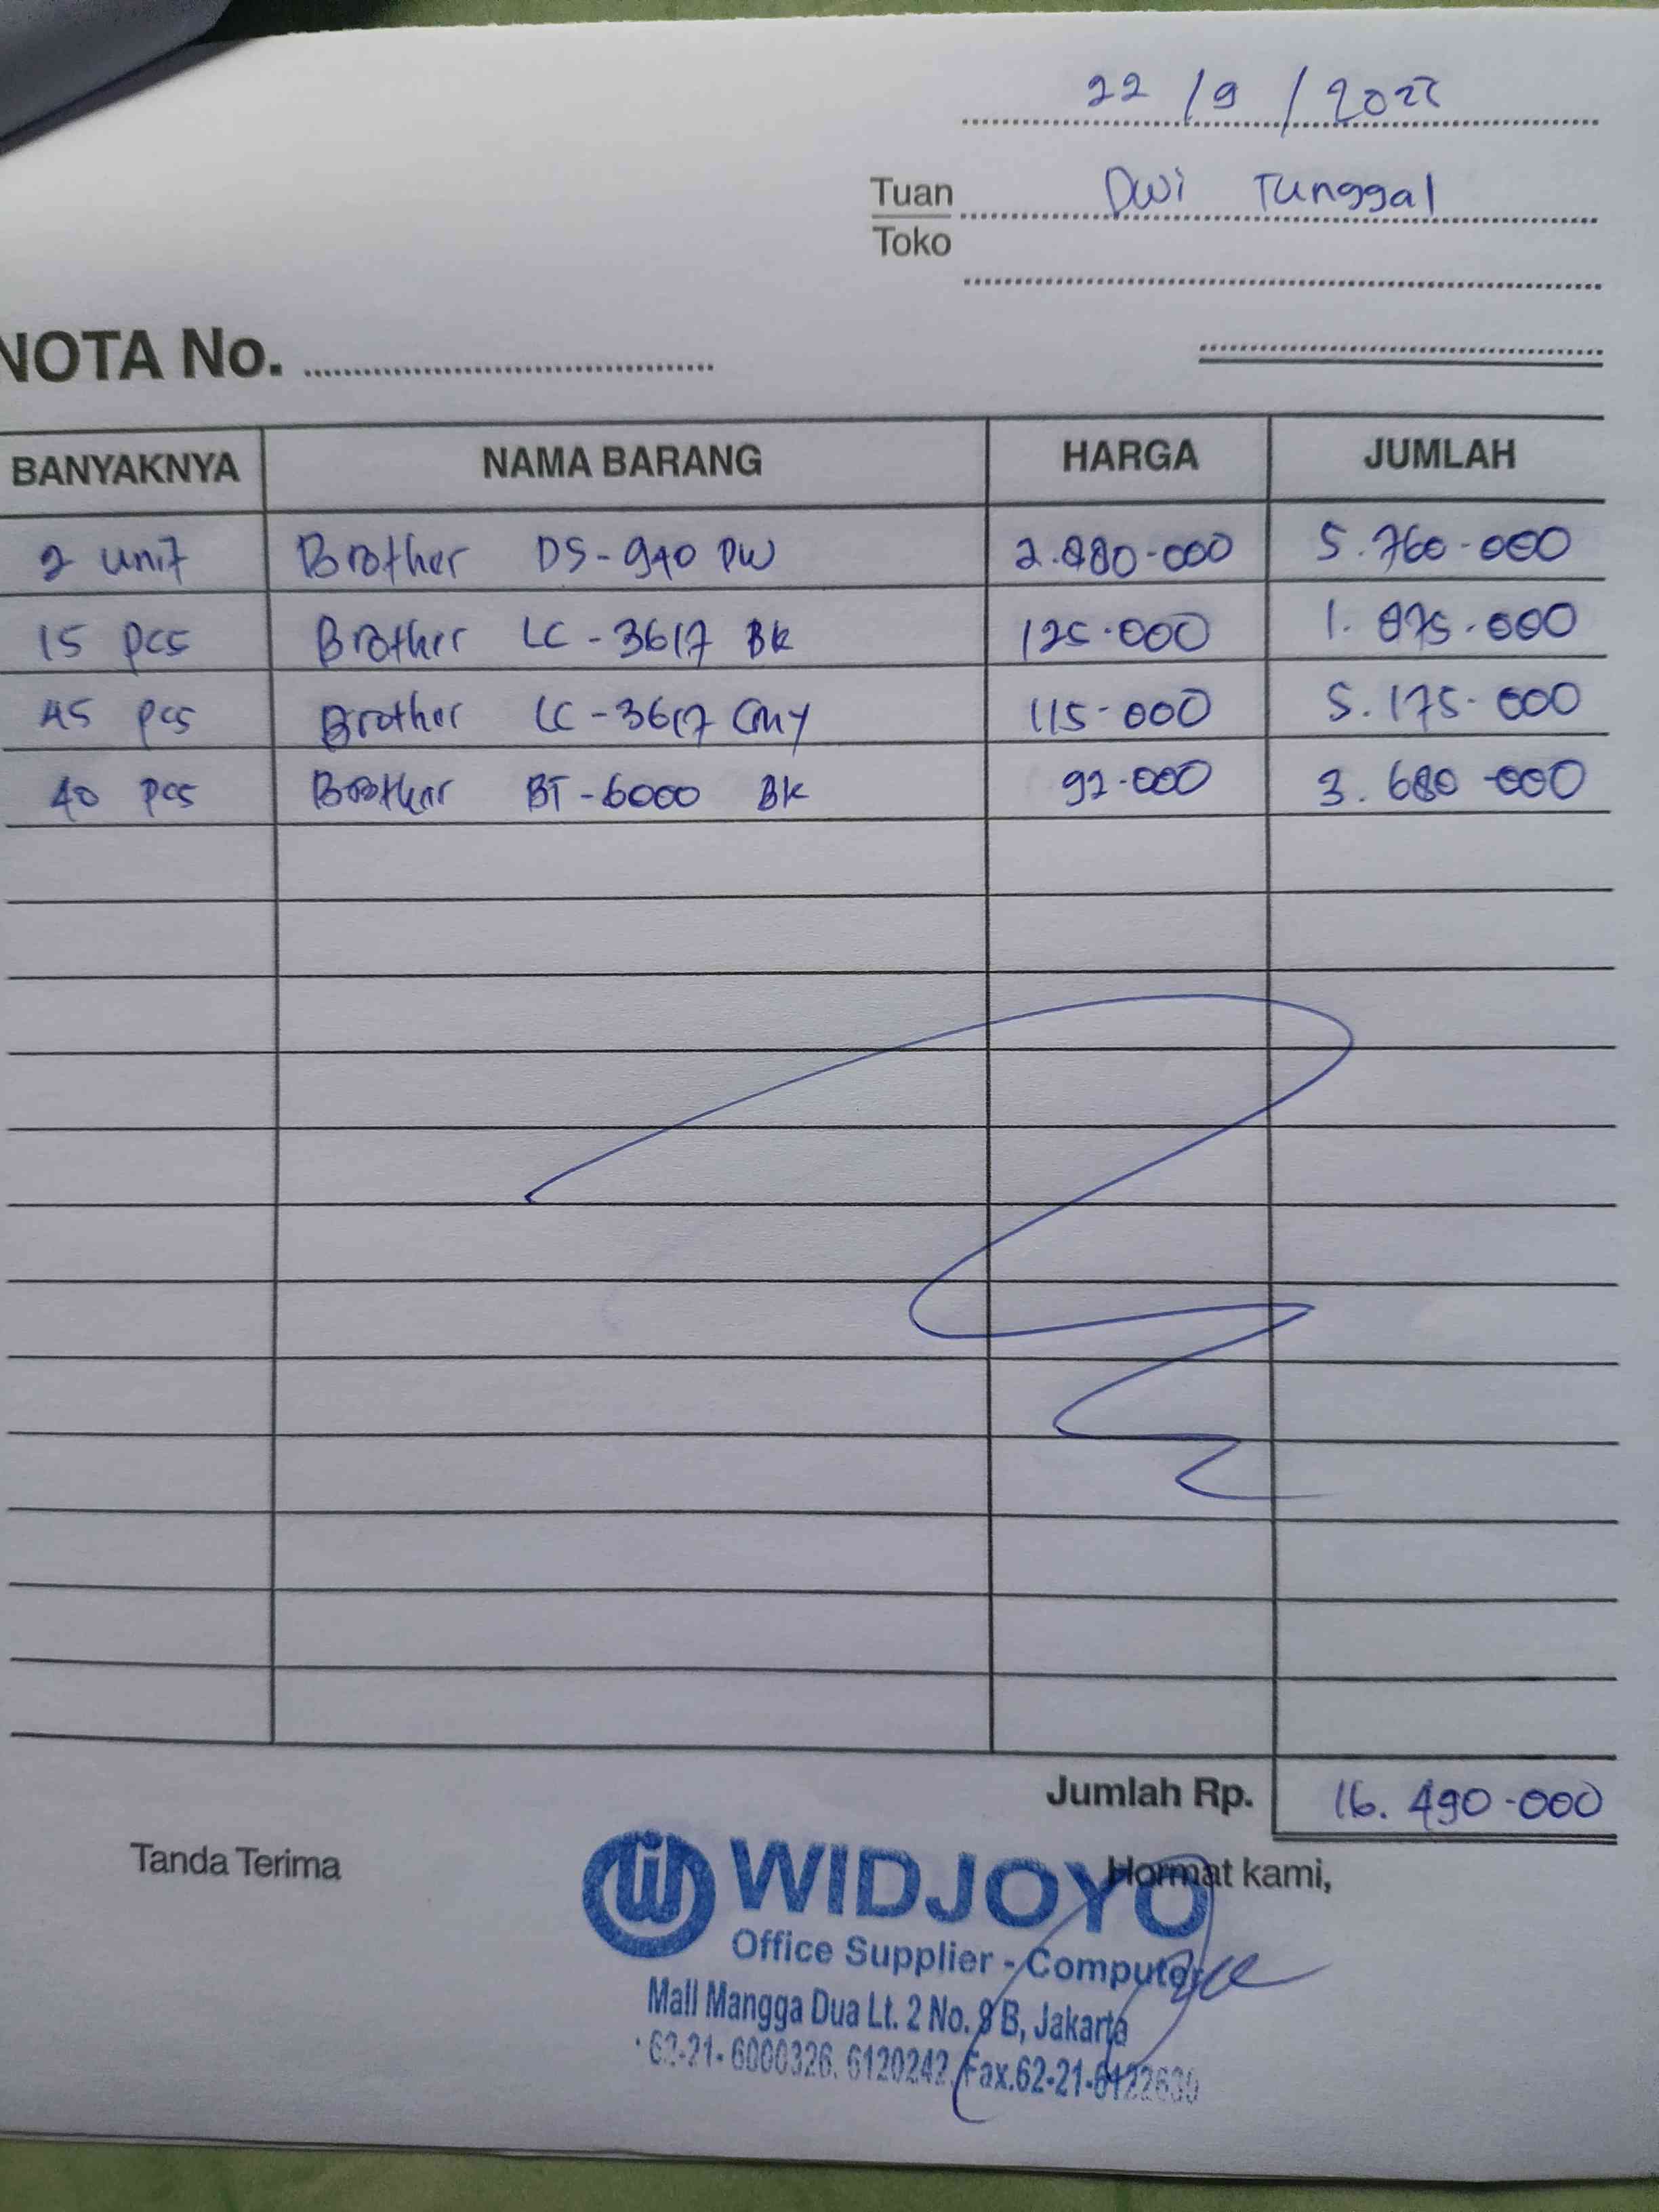 22 / 9 / 2022
Tuan Dwi Tunggal
Toko
NOTA No.
BANYAKNYA NAMA BARANG HARGA JUMLAH
2 unit Brother DS-940 DW 2.880.000 5.760.000
15 pcs Brother LC-3617 BK 125.000 1.875.000
45 pcs Brother LC-3617 CMY 115.000 5.175.000
40 pcs Brother BT-6000 BK 92.000 3.680.000
Jumlah Rp. 16.490.000
Tanda Terima Hormat kami,
WIDJOYO
Office Supplier - Computer
Mall Mangga Dua Lt. 2 No. 8 B, Jakarta
62-21- 6000326, 6120242, Fax.62-21-6122630